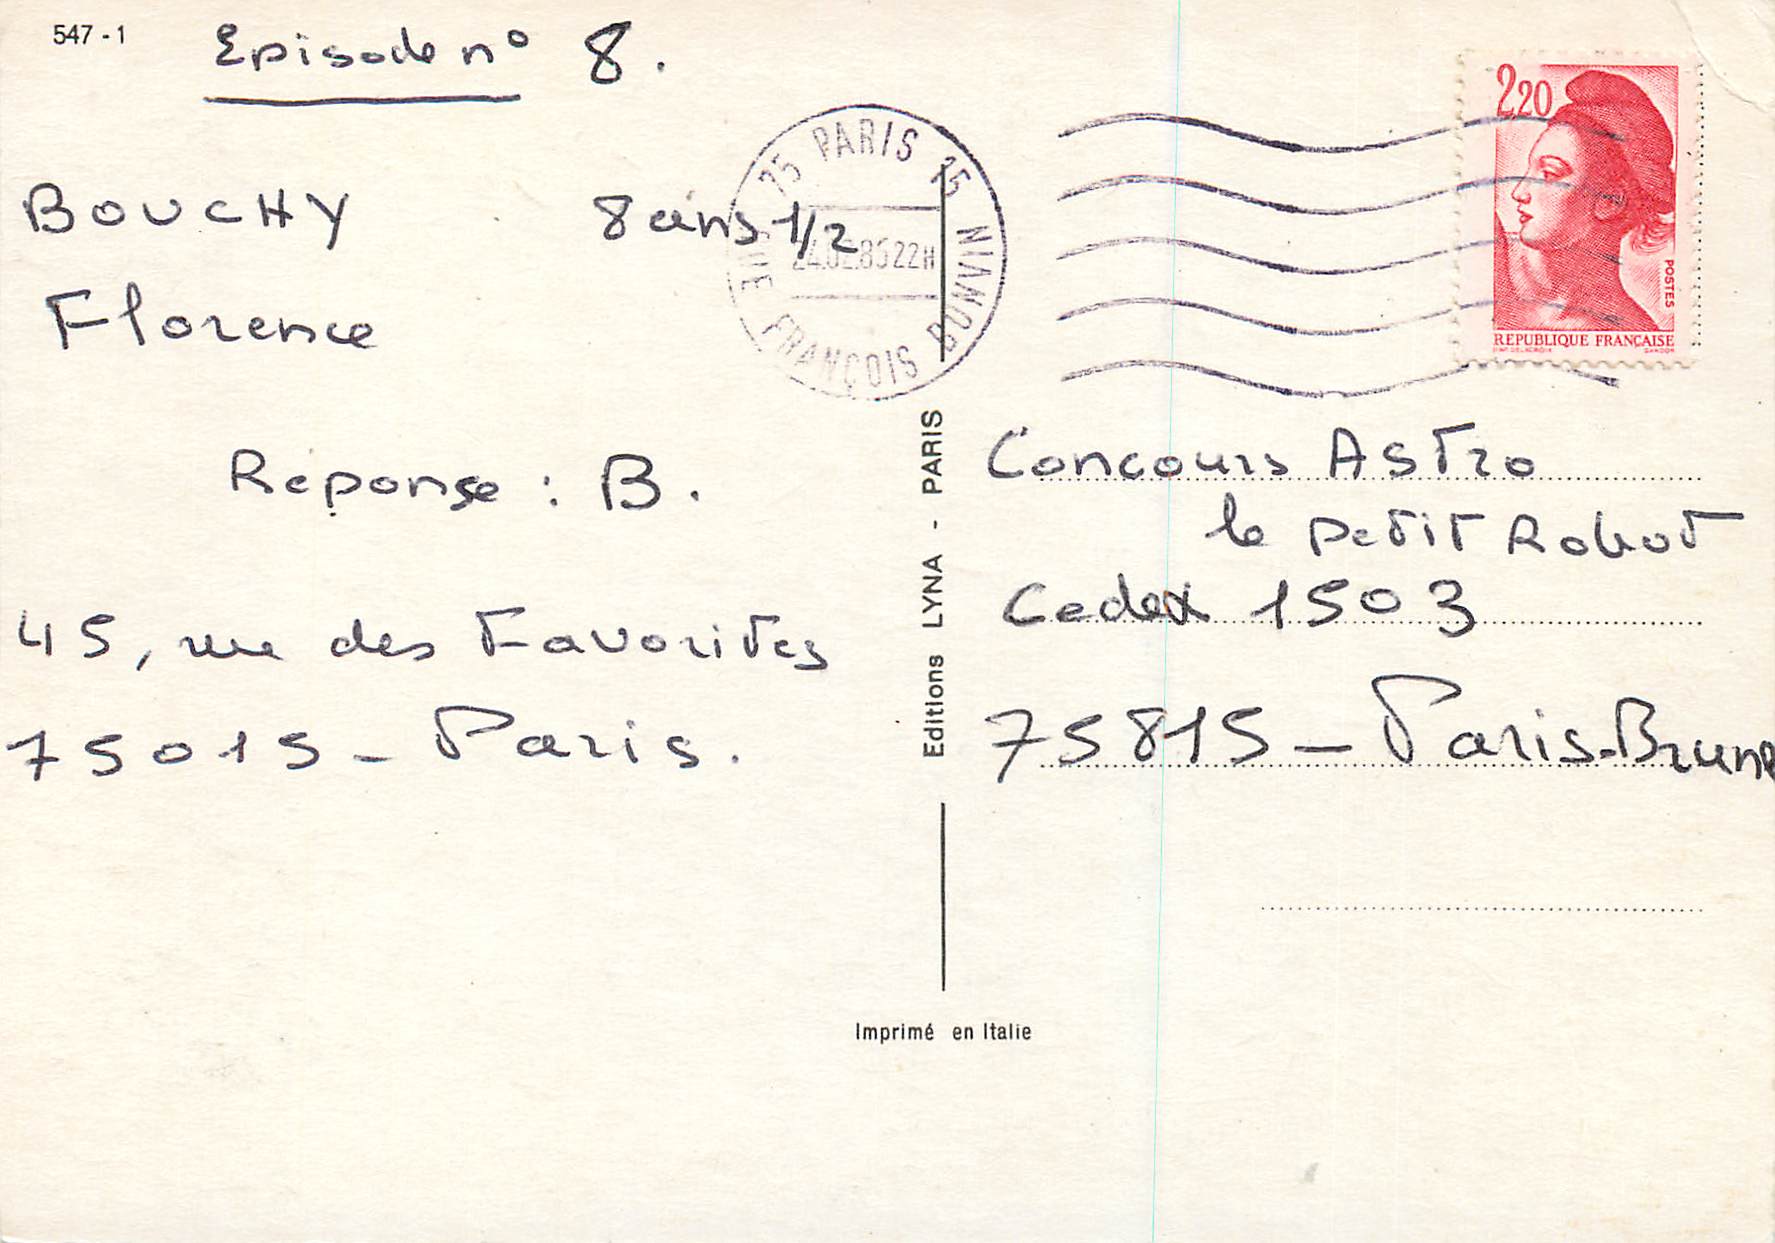 547 - 1
Episode n° 8.
BOUCHY 8 ans 1/2
Florence
Réponse : B.
45, rue des Favorites
75015 - Paris.
75 PARIS 15
FRANÇOIS BONVIN
22H
2,20
POSTES
REPUBLIQUE FRANÇAISE
Editions LYNA - PARIS
Concours Astro
le petit Robot
Cedex 1503
75815 - Paris-Brune
Imprimé en Italie